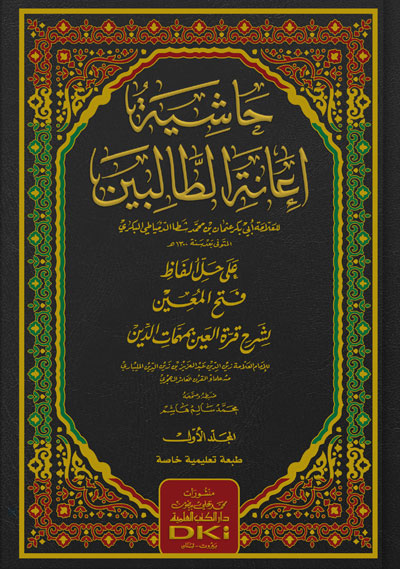 حاشية
إعانة الطالبين
للعلامة أبي بكر عثمان بن محمد شطا الدمياطي البكري
المتوفى بعد سنة ١٣٠٠ هـ
على حل ألفاظ
فتح المعين
لشرح قرة العين بمهمات الدين
للإمام العلامة زين الدين عبد العزيز بن زين الدين المليباري
من علماء القرن العاشر الهجري
ضبطه وصححه
محمد سالم هاشم
المجلد الأول
طبعة تعليمية خاصة
منشورات
محمد علي بيضون
دار الكتب العلمية
DKi
بيروت - لبنان